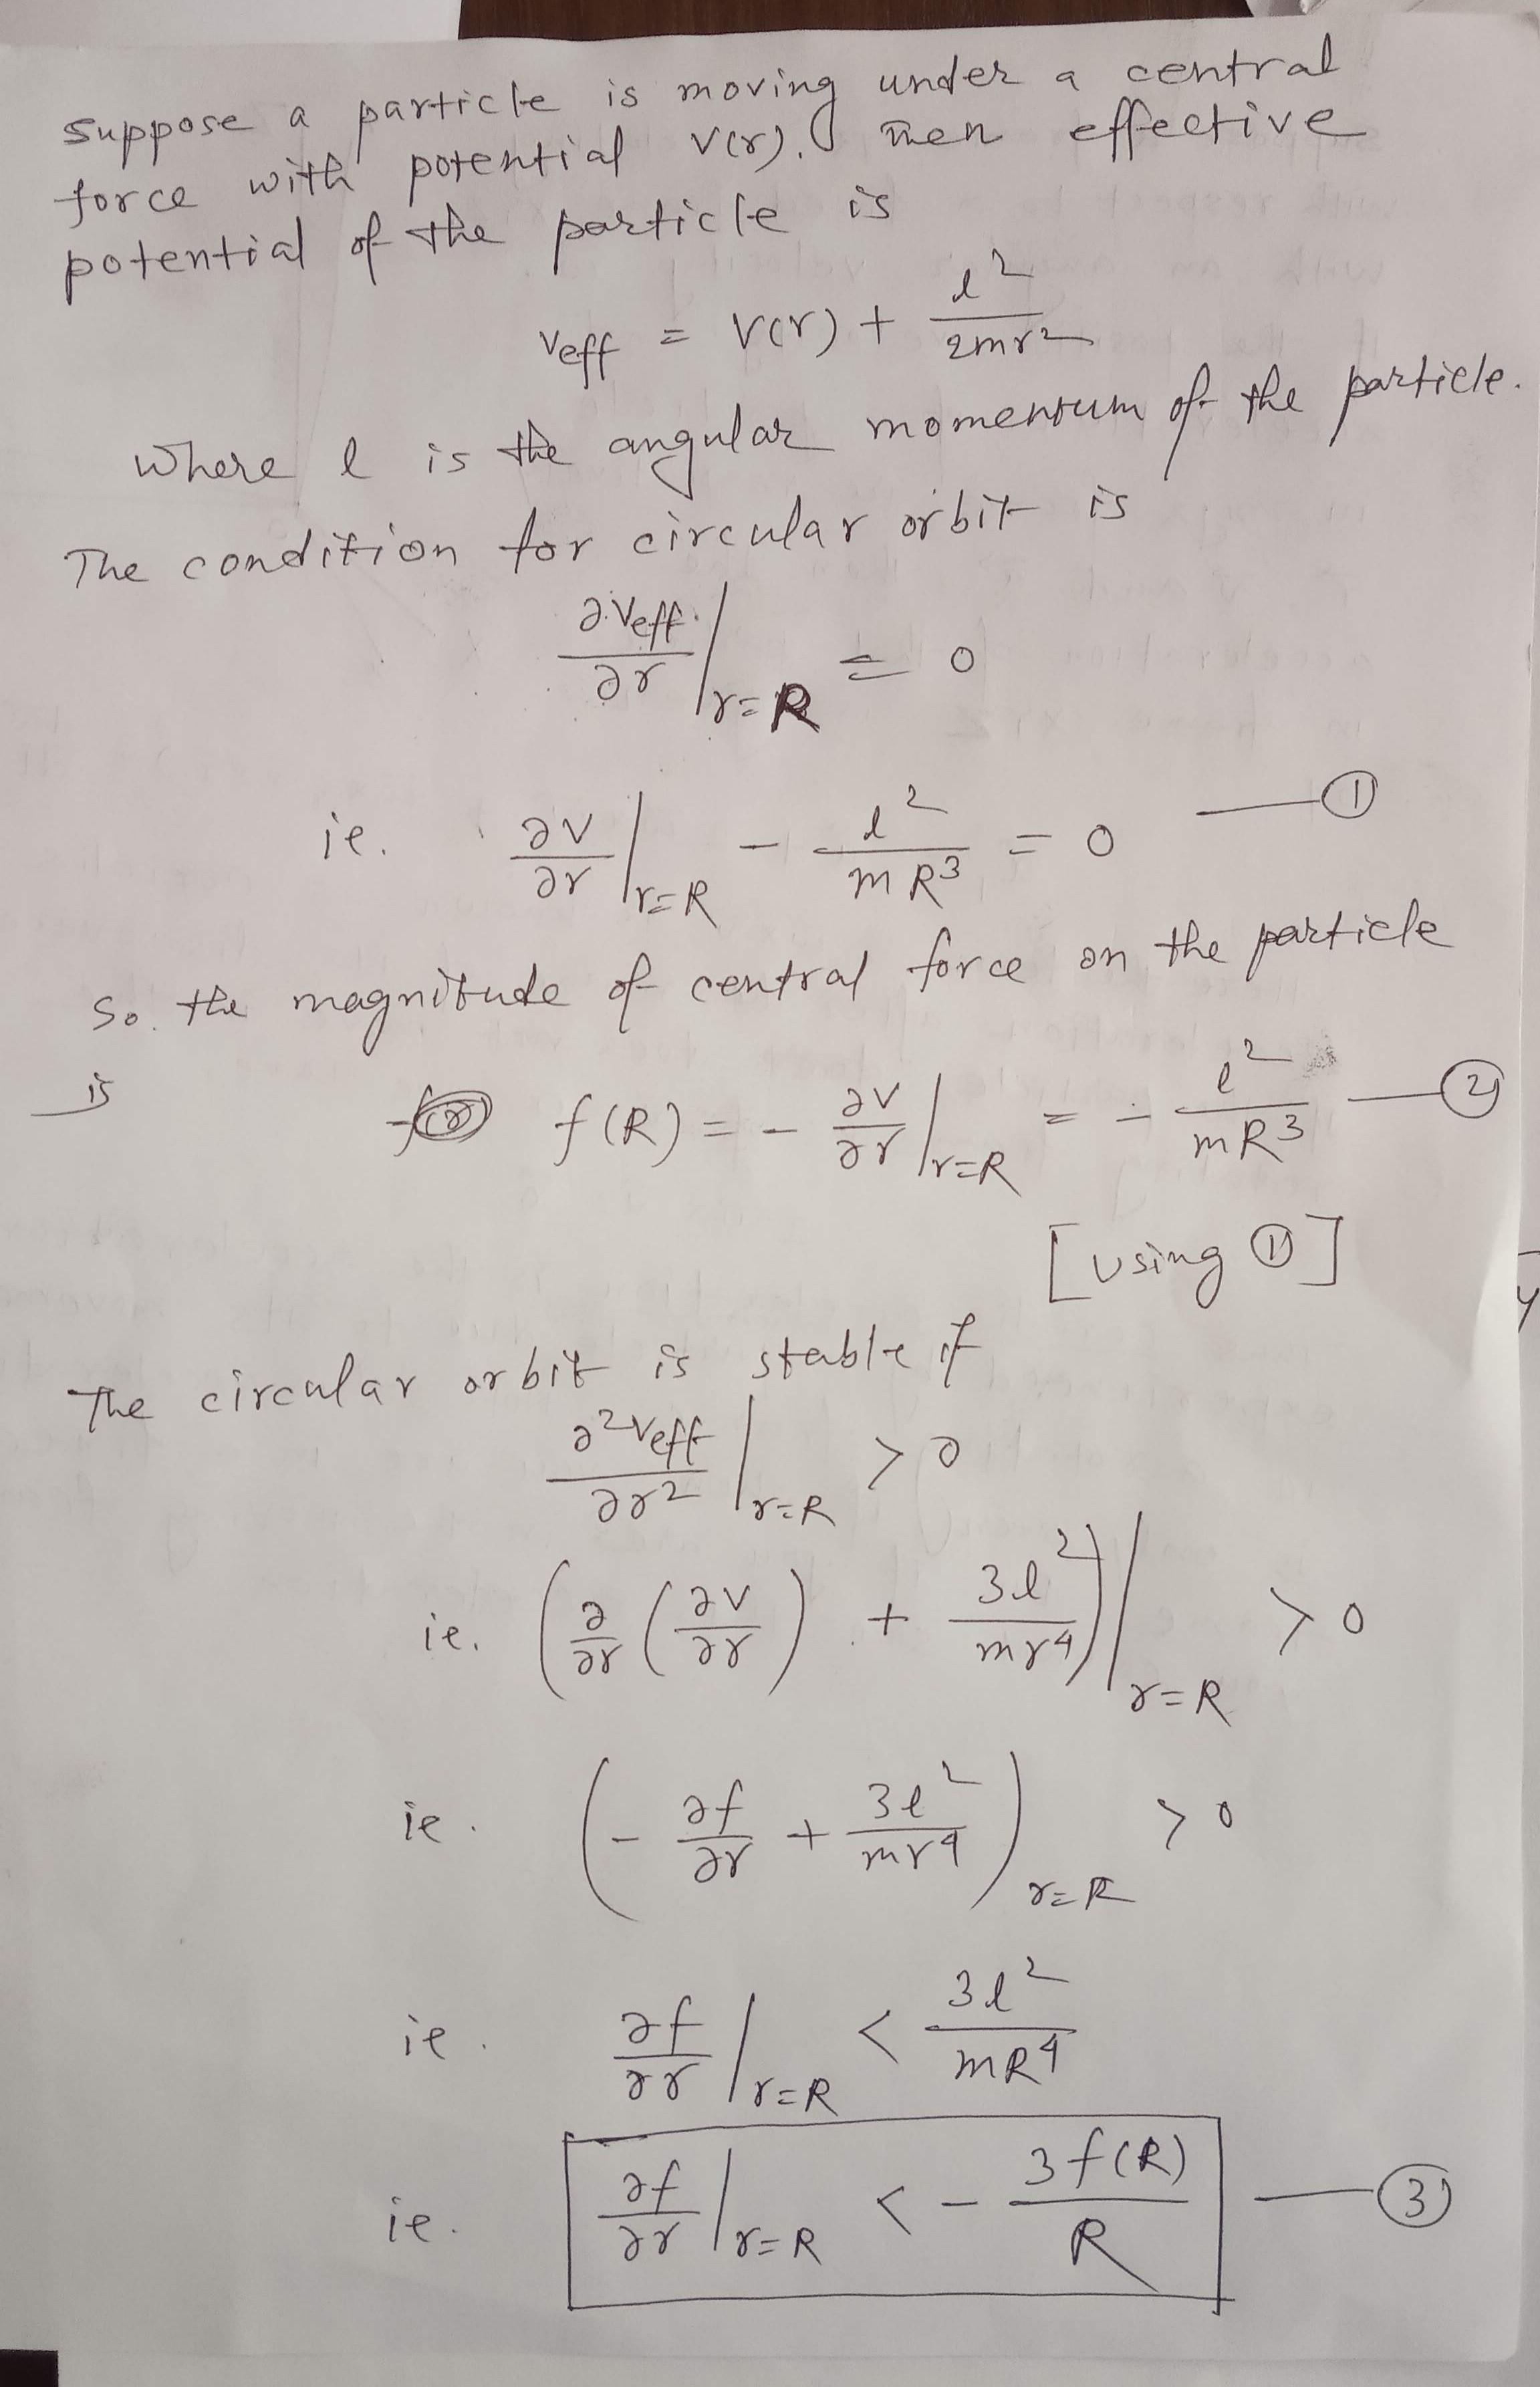 suppose a particle is moving under a central
force with potential V(r). Then effective
potential of the particle is
Veff = V(r) + l²/2mr²
Where l is the angular momentum of the particle.
The condition for circular orbit is
∂Veff/∂r |r=R = 0
ie. ∂V/∂r |r=R - l²/mR³ = 0 — ①
So. the magnitude of central force on the particle
is f(R) = - ∂V/∂r |r=R = - l²/mR³ — ②
[Using ①]
The circular orbit is stable if
∂²Veff/∂r² |r=R > 0
ie. (∂/∂r (∂V/∂r) + 3l²/mr⁴) |r=R > 0
ie. (- ∂f/∂r + 3l²/mr⁴) r=R > 0
ie. ∂f/∂r |r=R < 3l²/mR⁴
ie. ∂f/∂r |r=R < - 3f(R)/R — ③